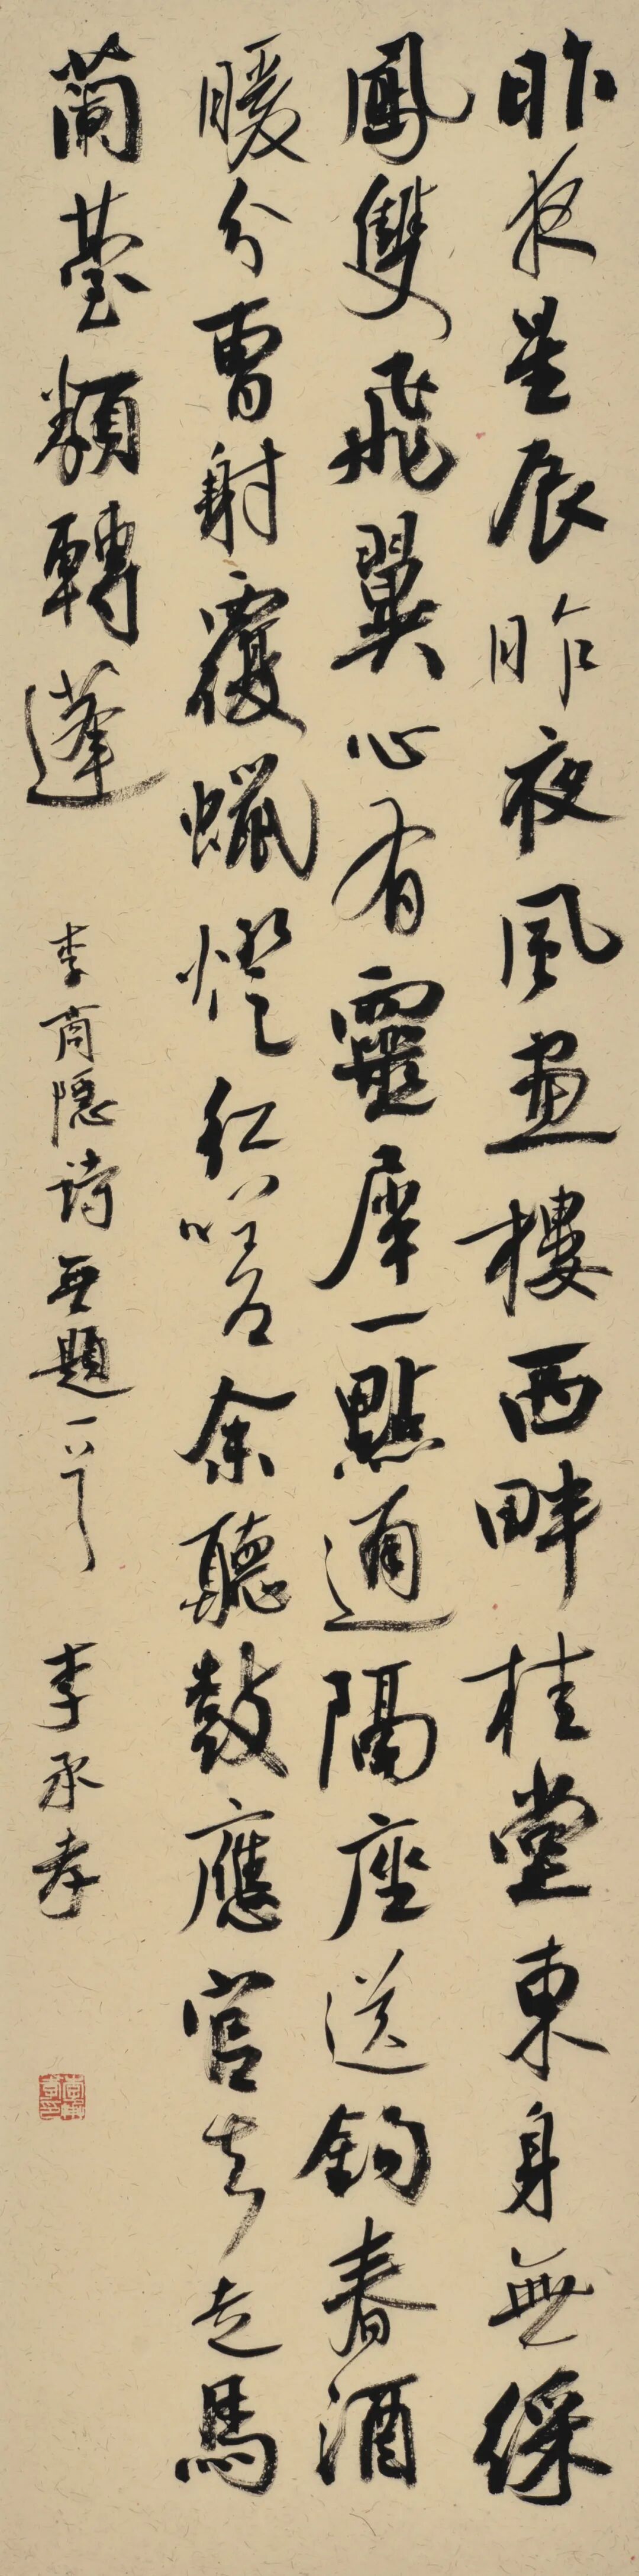 昨夜星辰昨夜風畫樓西畔桂堂東身無綵
鳳雙飛翼心有靈犀一點通隔座送鉤春酒
暖分曹射覆蠟燈红嗟余聽鼓應官去走馬
蘭臺類轉蓬
李商隐诗無題一首
李承孝